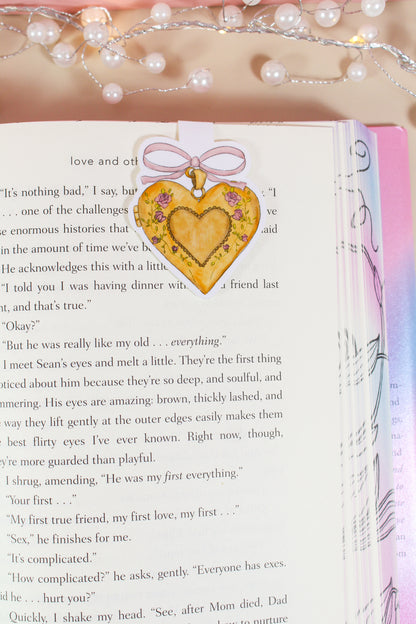 love and oth
"It's nothing bad," I say, bu
. . . one of the challenges
e enormous histories that
in the amount of time we've b
He acknowledges this with a littl
"I told you I was having dinner with friend last
nt, and that's true."
"Okay?"
"But he was really like my old . . . everything."
I meet Sean's eyes and melt a little. They're the first thing
oticed about him because they're so deep, and soulful, and
mmering. His eyes are amazing: brown, thickly lashed, and
way they lift gently at the outer edges easily makes them
best flirty eyes I've ever known. Right now, though,
ey're more guarded than playful.
I shrug, amending, "He was my first everything."
"Your first . . ."
"My first true friend, my first love, my first . . ."
"Sex," he finishes for me.
"It's complicated."
"How complicated?" he asks, gently. "Everyone has exes.
id he . . . hurt you?"
Quickly, I shake my head. "See, after Mom died, Dad
how to nurture